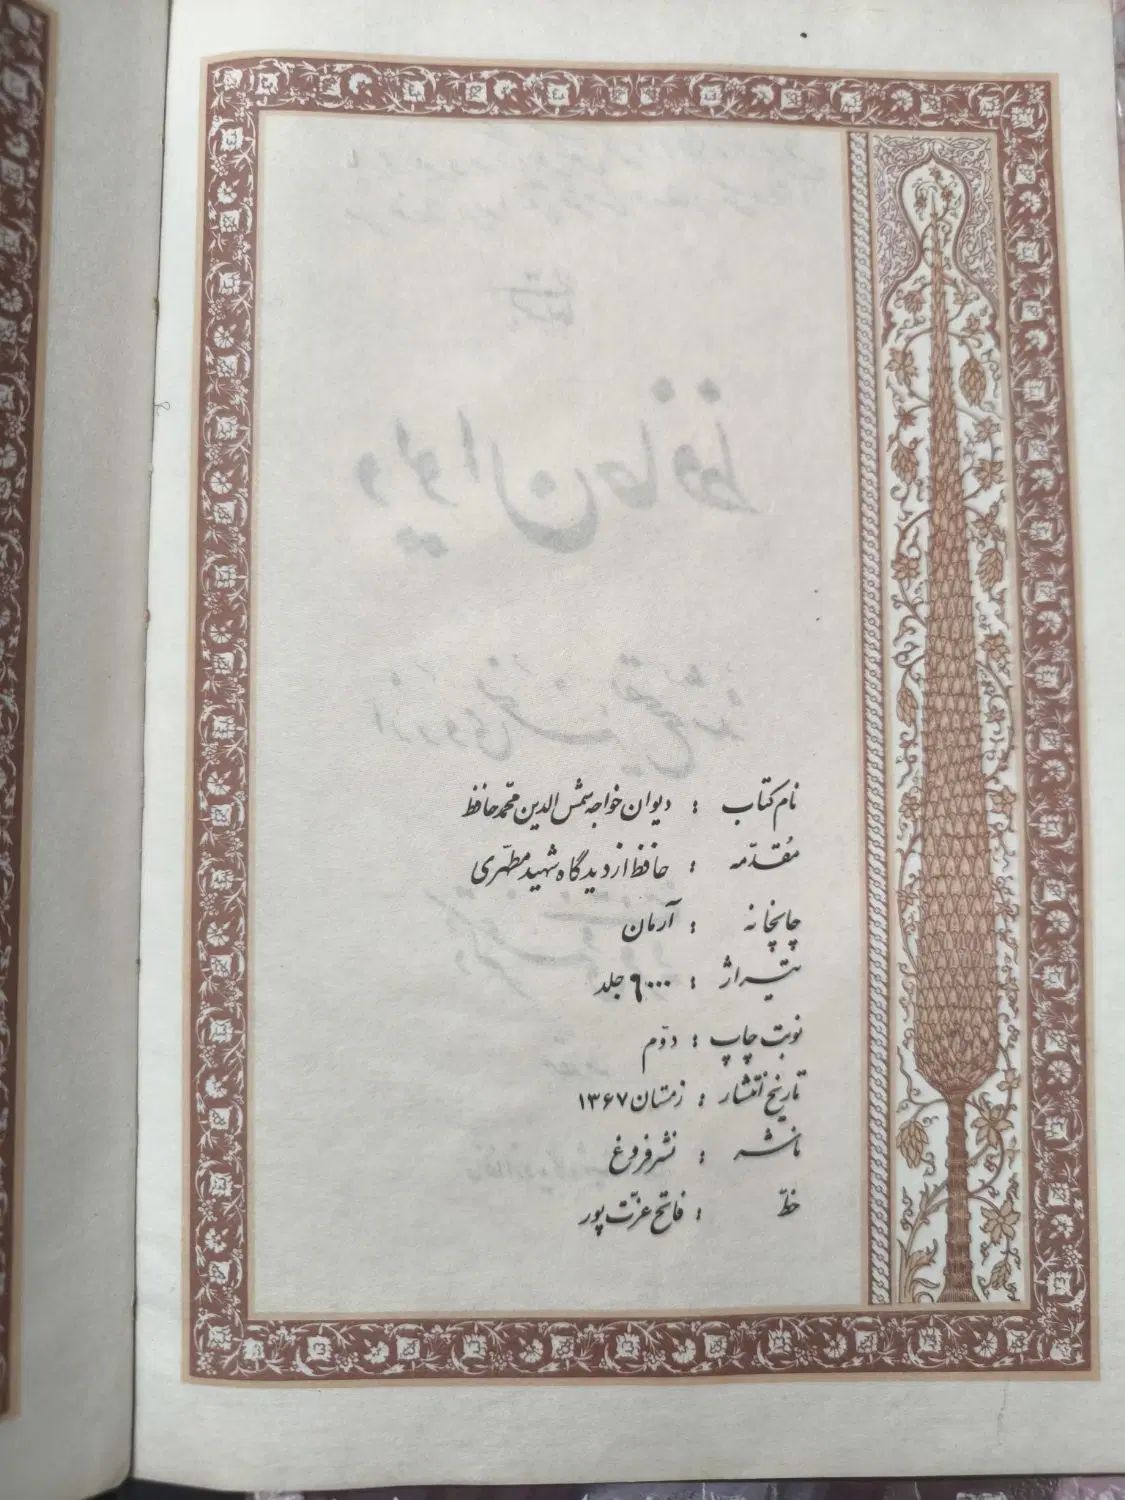 نام کتاب : دیوان خواجه شمس الدین محمّد حافظ
مُقدّمه : حافظ از دیدگاه شهید مطهّری
چاپخانه : آرمان
تیراژ : ۶۰۰۰ جلد
نوبت چاپ : دوّم
تاریخ انتشار : زمستان ۱۳۶۷
ناشر : نشر فروغ
خطّ : فاتح عزّت پور